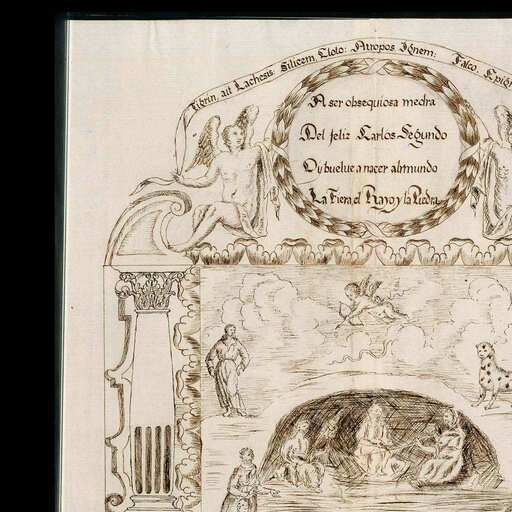 Tigrin, ait Lachesis: Silicem, Cloto: Atropos Ignem: Falco. Epigr
A ser obsequiosa medra
Del feliz Carlos Segundo
Oy buelue a nacer al mundo
La Fiera el Rayo y la Piedra